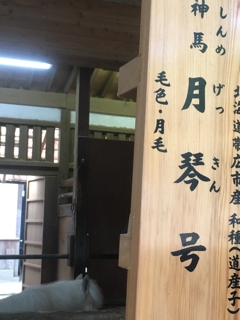 北海道帯広市産 和種(道産子)
しんめ げっきん
神馬 月琴号
毛色・月毛